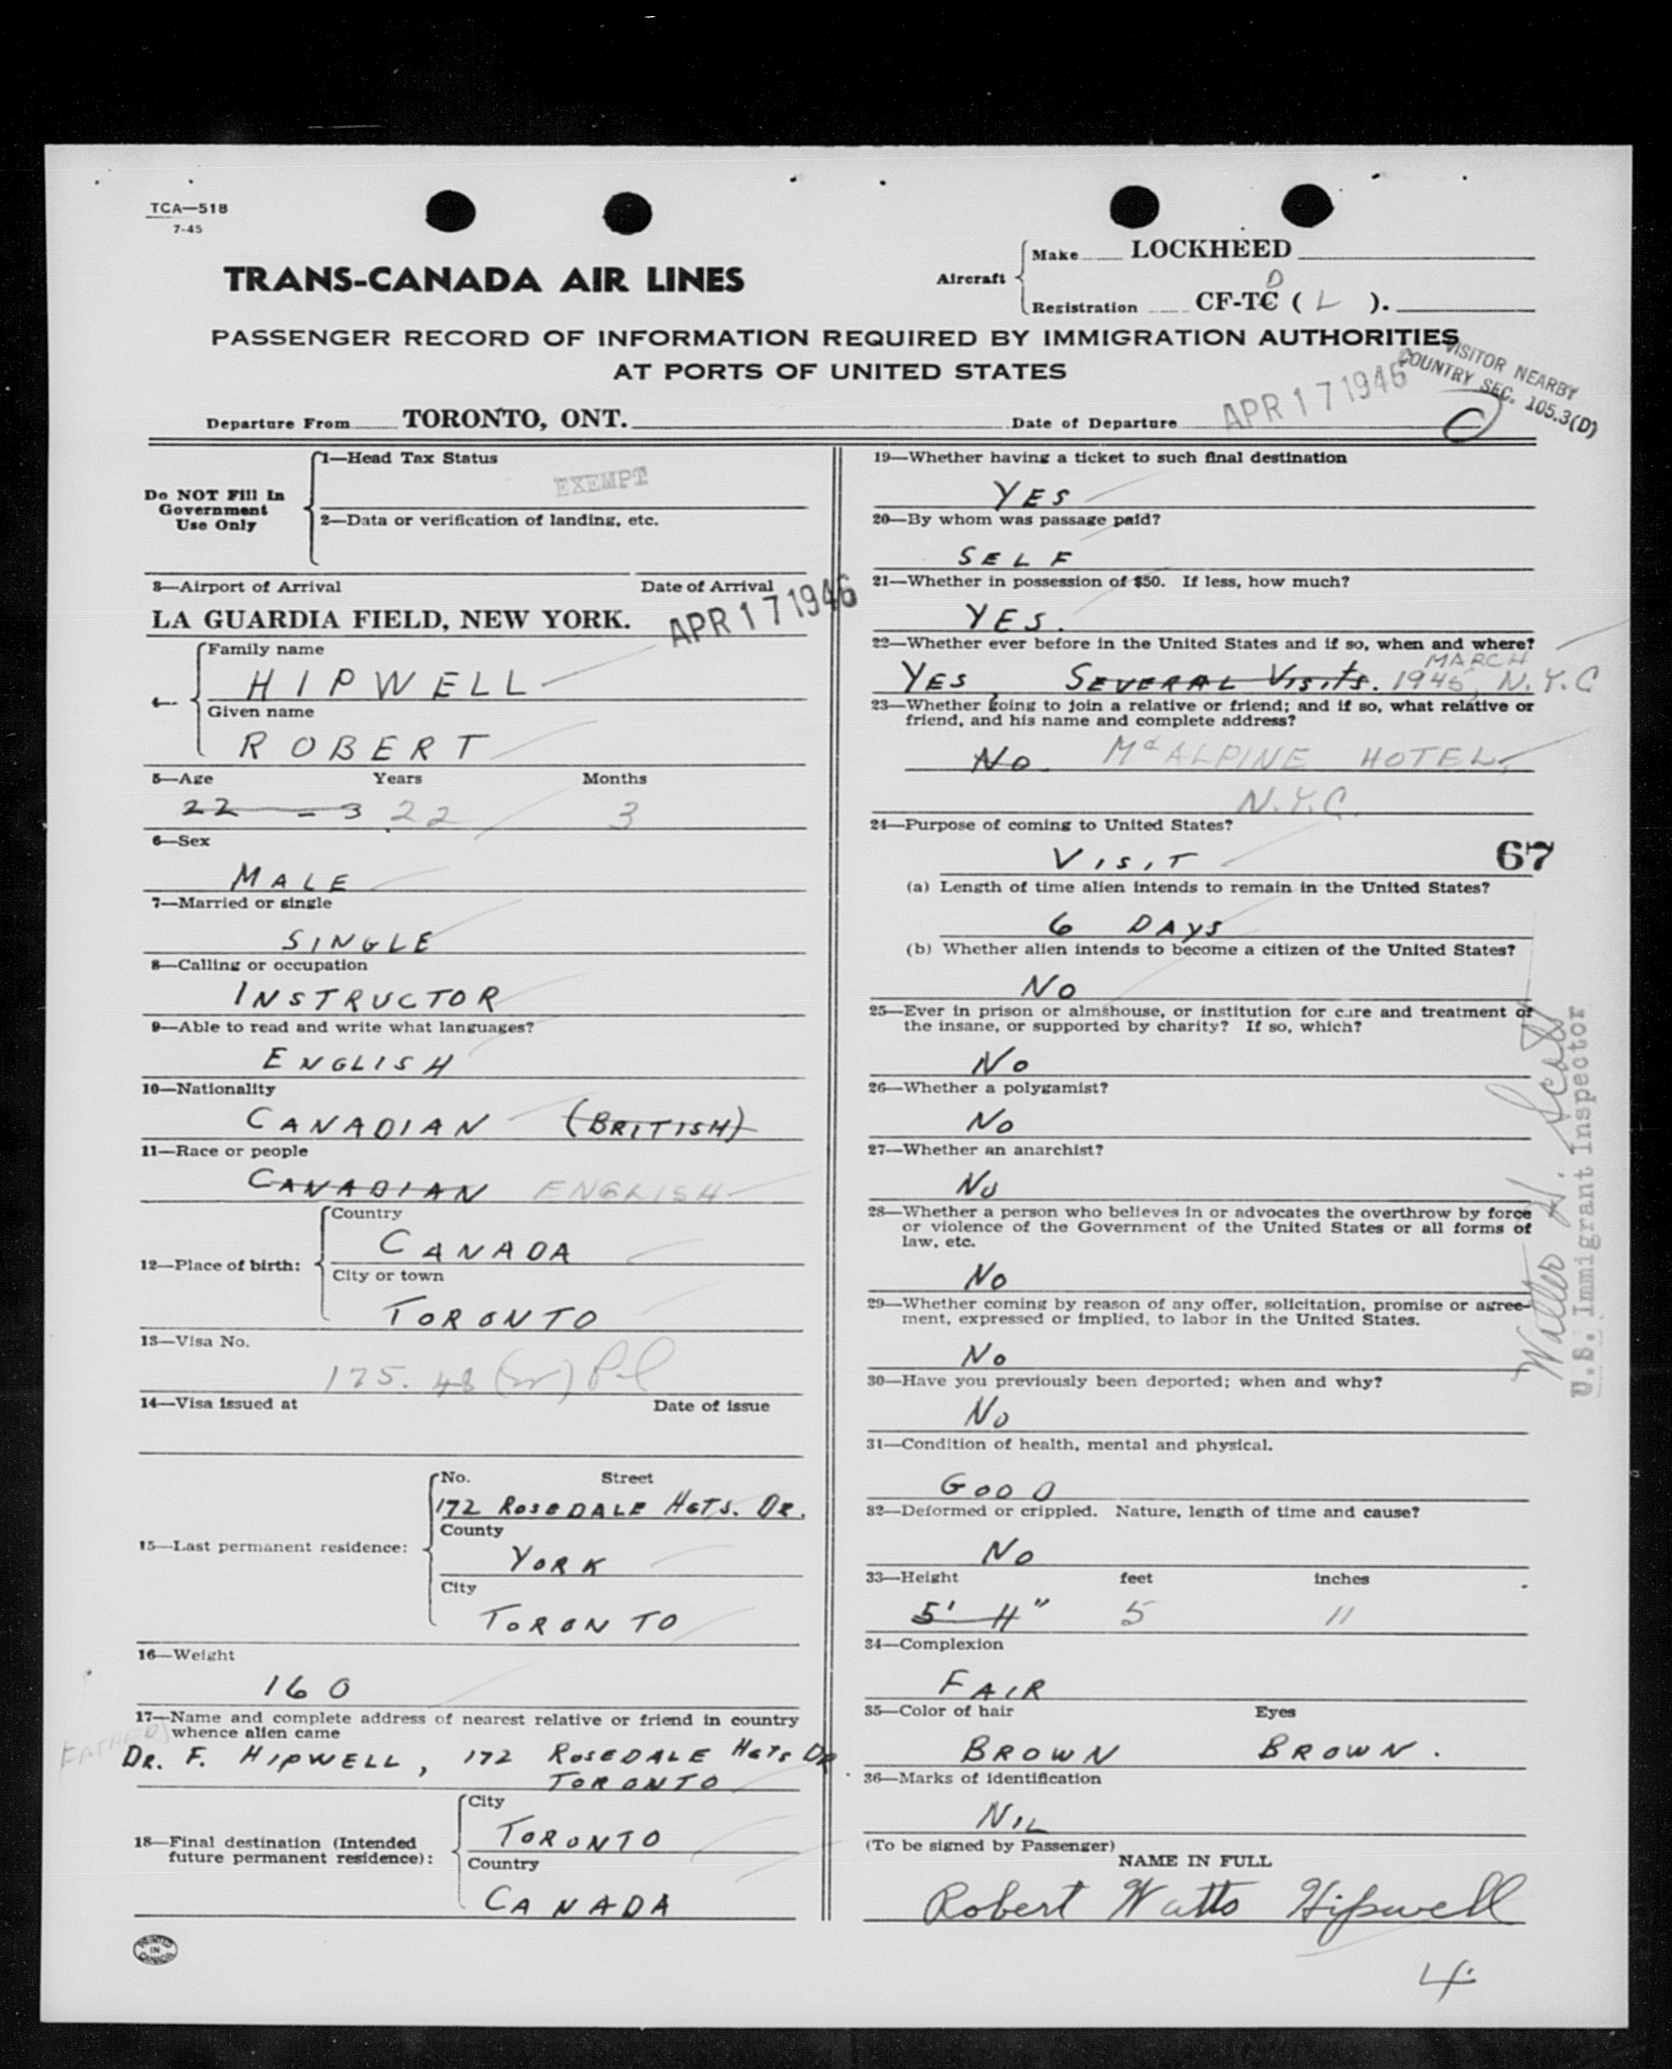 TCA—518
7-45
TRANS-CANADA AIR LINES
Aircraft
Make LOCKHEED
Registration CF-TC D ( L ).
PASSENGER RECORD OF INFORMATION REQUIRED BY IMMIGRATION AUTHORITIES
AT PORTS OF UNITED STATES
VISITOR NEARBY
COUNTRY SEC. 105.3(D)
Departure From TORONTO, ONT. Date of Departure APR 17 1946
Do NOT Fill In
Government
Use Only
1—Head Tax Status
EXEMPT
2—Data or verification of landing, etc.
3—Airport of Arrival Date of Arrival
LA GUARDIA FIELD, NEW YORK. APR 17 1946
4—
Family name
HIPWELL
Given name
ROBERT
5—Age Years Months
22 - 3 22 3
6—Sex
MALE
7—Married or single
SINGLE
8—Calling or occupation
INSTRUCTOR
9—Able to read and write what languages?
ENGLISH
10—Nationality
CANADIAN (BRITISH)
11—Race or people
CANADIAN ENGLISH
12—Place of birth:
Country
CANADA
City or town
TORONTO
13—Visa No.
175. 48
14—Visa issued at Date of issue
15—Last permanent residence:
No. Street
172 ROSEDALE HGTS. DR.
County
YORK
City
TORONTO
16—Weight
160
17—Name and complete address of nearest relative or friend in country
whence alien came
FATHER)
DR. F. HIPWELL, 172 ROSEDALE HGTS DR
TORONTO
18—Final destination (Intended
future permanent residence):
City
TORONTO
Country
CANADA
PRINTED
IN
CANADA
19—Whether having a ticket to such final destination
YES
20—By whom was passage paid?
SELF
21—Whether in possession of $50. If less, how much?
YES.
22—Whether ever before in the United States and if so, when and where?
MARCH
YES SEVERAL VISITS. 1945, N.Y.C
23—Whether going to join a relative or friend; and if so, what relative or
friend, and his name and complete address?
No. McALPINE HOTEL,
N.Y.C.
24—Purpose of coming to United States?
VISIT
67
(a) Length of time alien intends to remain in the United States?
6 DAYS
(b) Whether alien intends to become a citizen of the United States?
No
25—Ever in prison or almshouse, or institution for care and treatment of
the insane, or supported by charity? If so, which?
No
26—Whether a polygamist?
No
27—Whether an anarchist?
No
28—Whether a person who believes in or advocates the overthrow by force
or violence of the Government of the United States or all forms of
law, etc.
No
29—Whether coming by reason of any offer, solicitation, promise or agree-
ment, expressed or implied, to labor in the United States.
No
30—Have you previously been deported; when and why?
No
31—Condition of health, mental and physical.
GOOD
32—Deformed or crippled. Nature, length of time and cause?
No
33—Height feet inches
5' 11" 5 11
34—Complexion
FAIR
35—Color of hair Eyes
BROWN BROWN.
36—Marks of identification
NIL
(To be signed by Passenger)
NAME IN FULL
Robert Watts Hipwell
4
Walter H. Scott
U.S. Immigrant Inspector